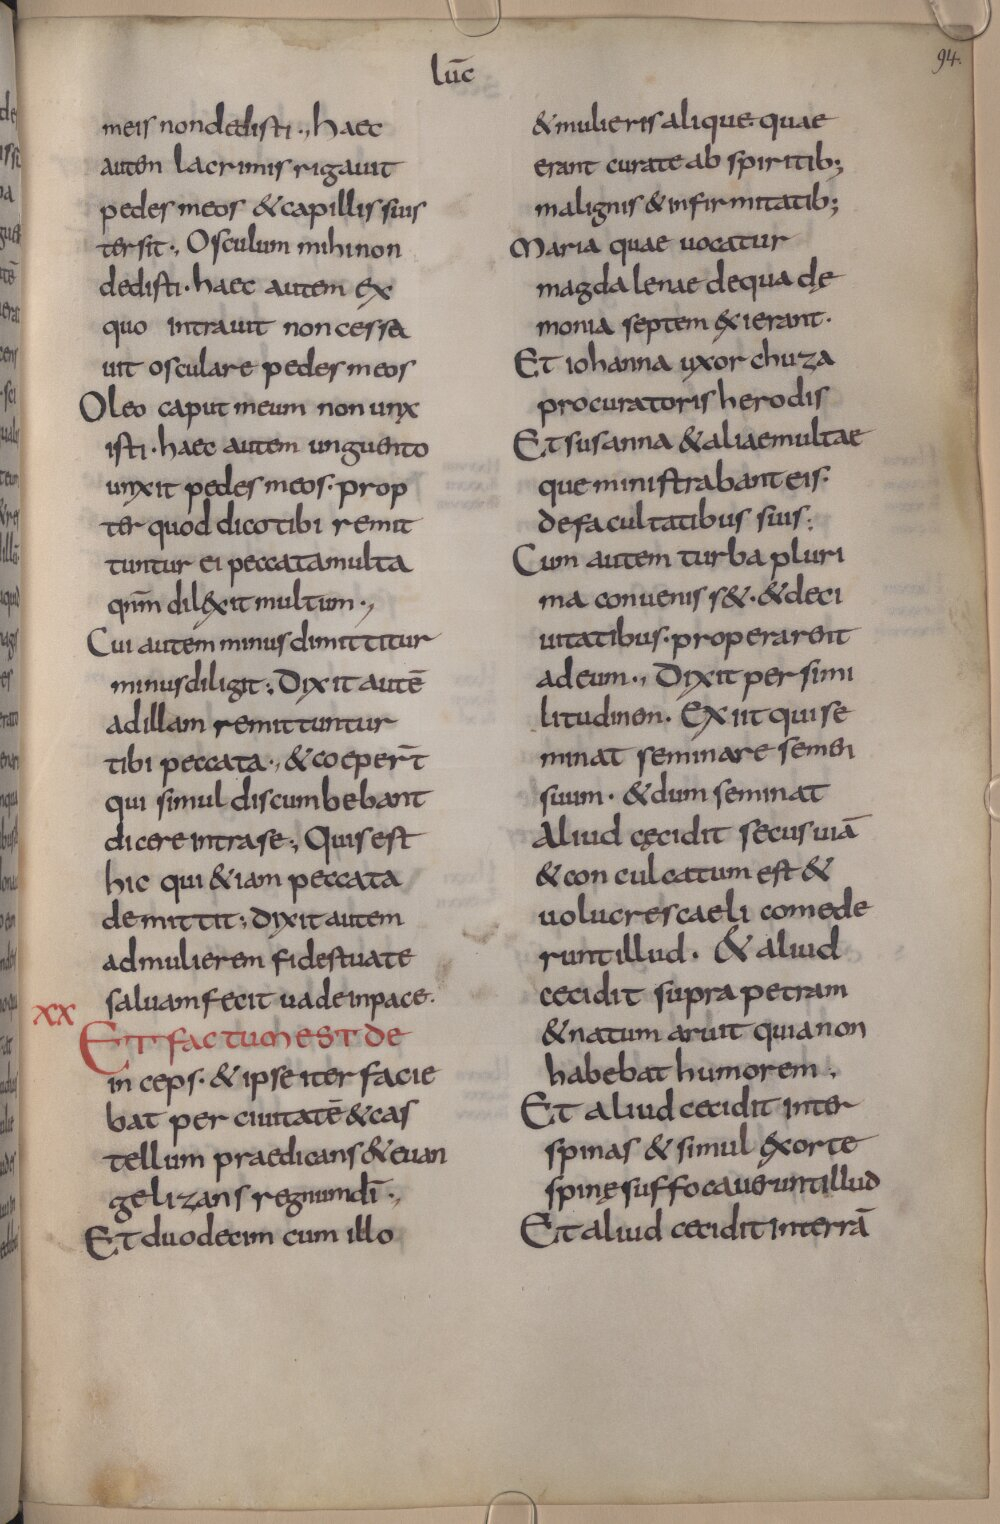 lūc
94.
meis non dedisti., haec
autem lacrimis rigauit
pedes meos & capillis suis
tersit., Osculum mihi non
dedisti. haec autem ex
quo intrauit non cessa
uit osculare pedes meos
Oleo caput meum non unx
isti. haec autem unguento
unxit pedes meos. prop
ter quod dico tibi remit
tuntur ei peccata multa
qnm̄ dilexit multum.,
Cui autem minus dimittitur
minus diligit; Dixit autē
ad illam remittuntur
tibi peccata., & coeper̄t
qui simul discumbebant
dicere intra se., Quis est
hic qui &iam peccata
demittit; dixit autem
ad mulierem fides tua te
saluam fecit uade in pace.
xx
Et factum est de
in ceps. & ipse iter facie
bat per ciuitatē & cas
tellum praedicans & euan
gelizans regnum dī.,
Et duodecim cum illo
& mulieris alique quae
erant curate ab spiritib;
malignis & infirmitatib;
Maria quae uocatur
magdalenae de qua dę
monia septem exierant.
Et iohanna uxor chuza
procuratoris herodis
Et susanna & aliae multae
que ministrabant eis.
de facultatibus suis;
Cum autem turba pluri
ma conuenis s&. & de ci
uitatibus. properarent
ad eum., Dixit per simi
litudinem. Exiit qui se
minat seminare semen
suum. & dum seminat
Aliud cęcidit secus uiā
& conculcatum est &
uolucres caeli comede
runt illud. & aliud
cecidit supra petram
& natum aruit quia non
habebat humorem.
Et aliud cecidit inter
spinas & simul exorte
spinę suffocauerunt illud
Et aliud cecidit in terrā